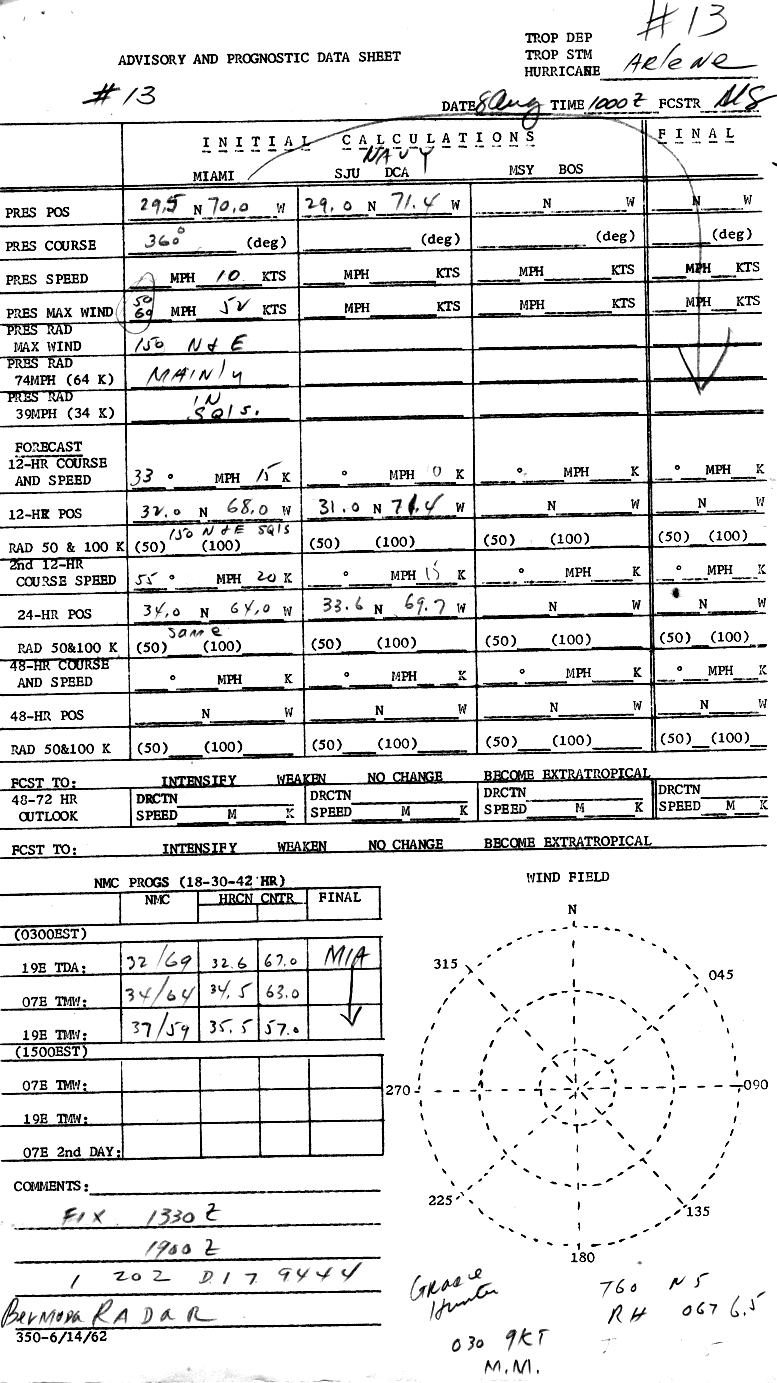 #13
TROP DEP
ADVISORY AND PROGNOSTIC DATA SHEET TROP STM
HURRICANE Arlene
#13
DATE 8 Aug TIME 1000Z FCSTR
INITIAL CALCULATIONS FINAL
NAVY
MIAMI SJU DCA MSY BOS
PRES POS 29.5 N 70.0 W 29.0 N 71.4 W N W N W
PRES COURSE 360° (deg) (deg) (deg) (deg)
PRES SPEED MPH 10 KTS MPH KTS MPH KTS MPH KTS
50
PRES MAX WIND 60 MPH 52 KTS MPH KTS MPH KTS MPH KTS
PRES RAD
MAX WIND 150 N & E
PRES RAD
74MPH (64 K) MAINLY
PRES RAD IN
39MPH (34 K) SQLS.
FORECAST
12-HR COURSE
AND SPEED 33 ° MPH 15 K ° MPH 10 K ° MPH K ° MPH K
12-HR POS 32.0 N 68.0 W 31.0 N 71.4 W N W N W
150 N & E SQLS
RAD 50 & 100 K (50) (100) (50) (100) (50) (100) (50) (100)
2nd 12-HR
COURSE SPEED 55 ° MPH 20 K ° MPH 15 K ° MPH K ° MPH K
24-HR POS 34.0 N 64.0 W 33.6 N 69.7 W N W N W
Same
RAD 50&100 K (50) (100) (50) (100) (50) (100) (50) (100)
48-HR COURSE
AND SPEED ° MPH K ° MPH K ° MPH K ° MPH K
48-HR POS N W N W N W N W
RAD 50&100 K (50) (100) (50) (100) (50) (100) (50) (100)
FCST TO: INTENSIFY WEAKEN NO CHANGE BECOME EXTRATROPICAL
48-72 HR DRCTN DRCTN DRCTN DRCTN
OUTLOOK SPEED M K SPEED M K SPEED M K SPEED M K
FCST TO: INTENSIFY WEAKEN NO CHANGE BECOME EXTRATROPICAL
NMC PROGS (18-30-42 HR)
NMC HRCN CNTR FINAL
(0300EST)
19E TDA: 32/69 32.6 67.0 MIA
07E TMW: 34/64 34.5 63.0
19E TMW: 37/59 35.5 57.0
(1500EST)
07E TMW:
19E TMW:
07E 2nd DAY:
COMMENTS:
FIX 1330 Z
1900 Z
1 202 D17 9444
Bermuda RADAR
350-6/14/62
WIND FIELD
N
315 045
270 090
225 135
180
Gracie 760 N5
Hunter RH 067 6.5
030 9KT
M.M.